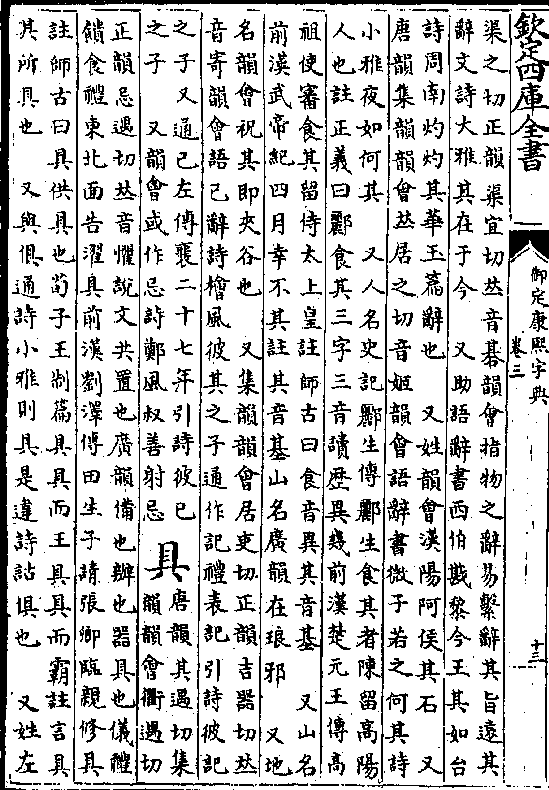 欽定四庫全書
御定康熙字典
卷三
十三
渠之切正韻渠宜切𠀤音碁韻會指物之辭易繫辭其旨遠其
辭文詩大雅其在于今　又助語辭書西伯戡黎今王其如台
詩周南灼灼其華玉篇辭也　又姓韻會漢陽阿侯其石　又
唐韻集韻韻會𠀤居之切音姬韻會語辭書微子若之何其詩
小雅夜如何其　又人名史記酈生傳酈生食其者陳留高陽
人也註正義曰酈食其三字三音讀歷異幾前漢楚元王傳高
祖使審食其留侍太上皇註師古曰食音異其音基　又山名
前漢武帝紀四月幸不其註其音基山名廣韻在琅邪　又地
名韻會祝其即夾谷也　又集韻韻會居吏切正韻吉器切𠀤
音寄韻會語已辭詩檜風彼其之子通作記禮表記引詩彼記
之子又通己左傳襄二十七年引詩彼己
之子　又韻會或作忌詩鄭風叔善射忌
具
唐韻其遇切集
韻韻會衢遇切
正韻忌遇切𠀤音懼說文共置也廣韻備也辦也器具也儀禮
饋食禮東北面告濯具前漢劉澤傳田生子請張卿臨親修具
註師古曰具供具也荀子王制篇具具而王具具而霸註言具
其所具也　又與俱通詩小雅則具是違詩詁俱也　又姓左